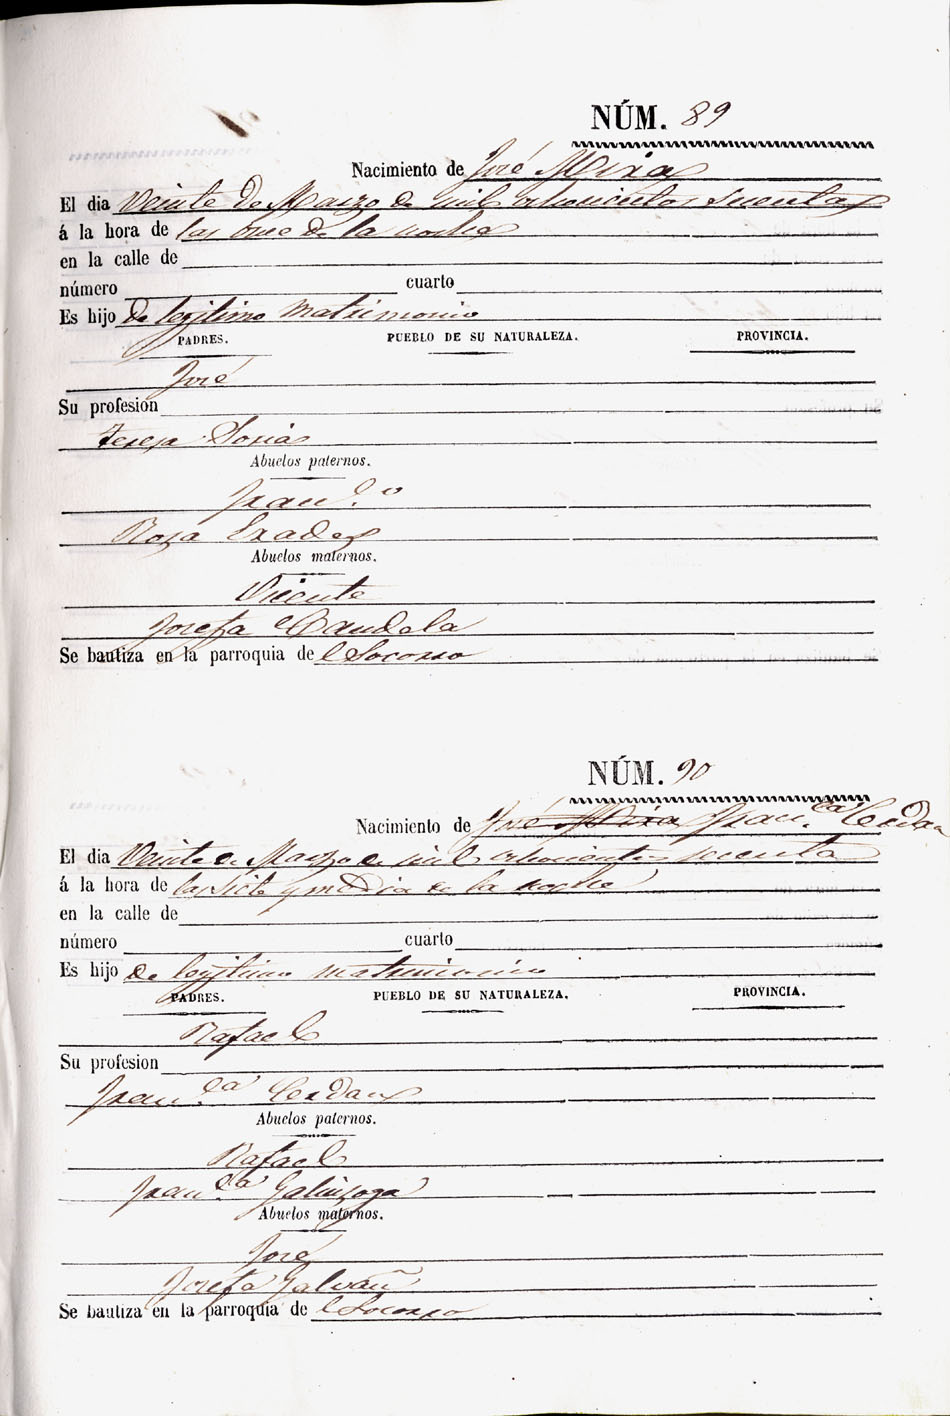 NÚM. 89
Nacimiento de José Mira
El dia Veinte de Marzo de mil ochocientos secenta
á la hora de las once de la noche
en la calle de
número cuarto
Es hijo de legitimo matrimonio
PADRES. PUEBLO DE SU NATURALEZA. PROVINCIA.
José
Su profesion
Teresa Soria
Abuelos paternos.
Fran.co
Rosa Prades
Abuelos maternos.
Vicente
Josefa Candela
Se bautiza en la parroquia de el Socorro
NÚM. 90
Nacimiento de José Mira Fran.ca Cerdan
El dia Veinte de Marzo de mil ochocientos secenta
á la hora de las siete y media de la noche
en la calle de
número cuarto
Es hijo de legitimo matrimonio
PADRES. PUEBLO DE SU NATURALEZA. PROVINCIA.
Rafael
Su profesion
Fran.ca Cerdan
Abuelos paternos.
Rafael
Fran.ca Galinzoga
Abuelos maternos.
José
Josefa Galvañ
Se bautiza en la parroquia de el Socorro